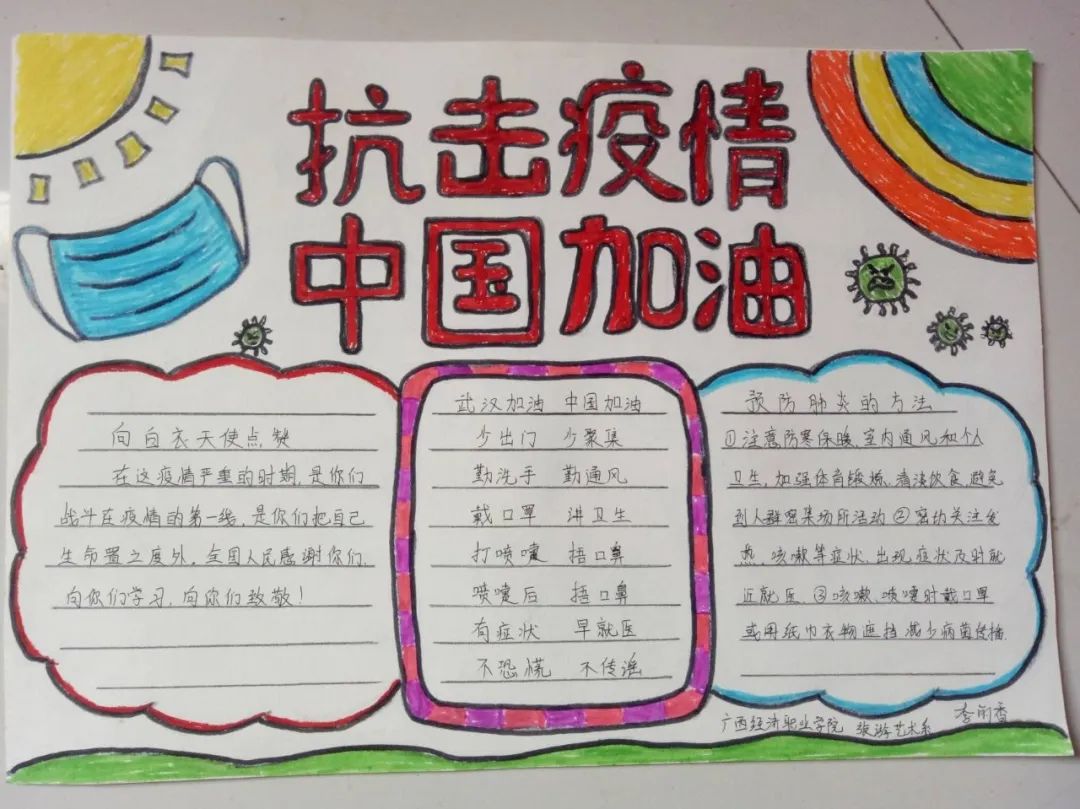 抗击疫情
中国加油
向白衣天使点赞
在这疫情严重的时期,是你们
战斗在疫情的第一线,是你们把自己
生命置之度外,全国人民感谢你们,
向你们学习,向你们致敬!
武汉加油 中国加油
少出门 少聚集
勤洗手 勤通风
戴口罩 讲卫生
打喷嚏 捂口鼻
喷嚏后 捂口鼻
有症状 早就医
不恐慌 不传谣
预防肺炎的方法
①注意防寒保暖、室内通风和个人
卫生,加强体育锻炼,清淡饮食,避免
到人群密集场所活动②密切关注发
热、咳嗽等症状,出现症状及时就
近就医、③咳嗽、喷嚏时戴口罩
或用纸巾衣物遮挡减少病菌传播
广西经济职业学院 艺术系
李 香